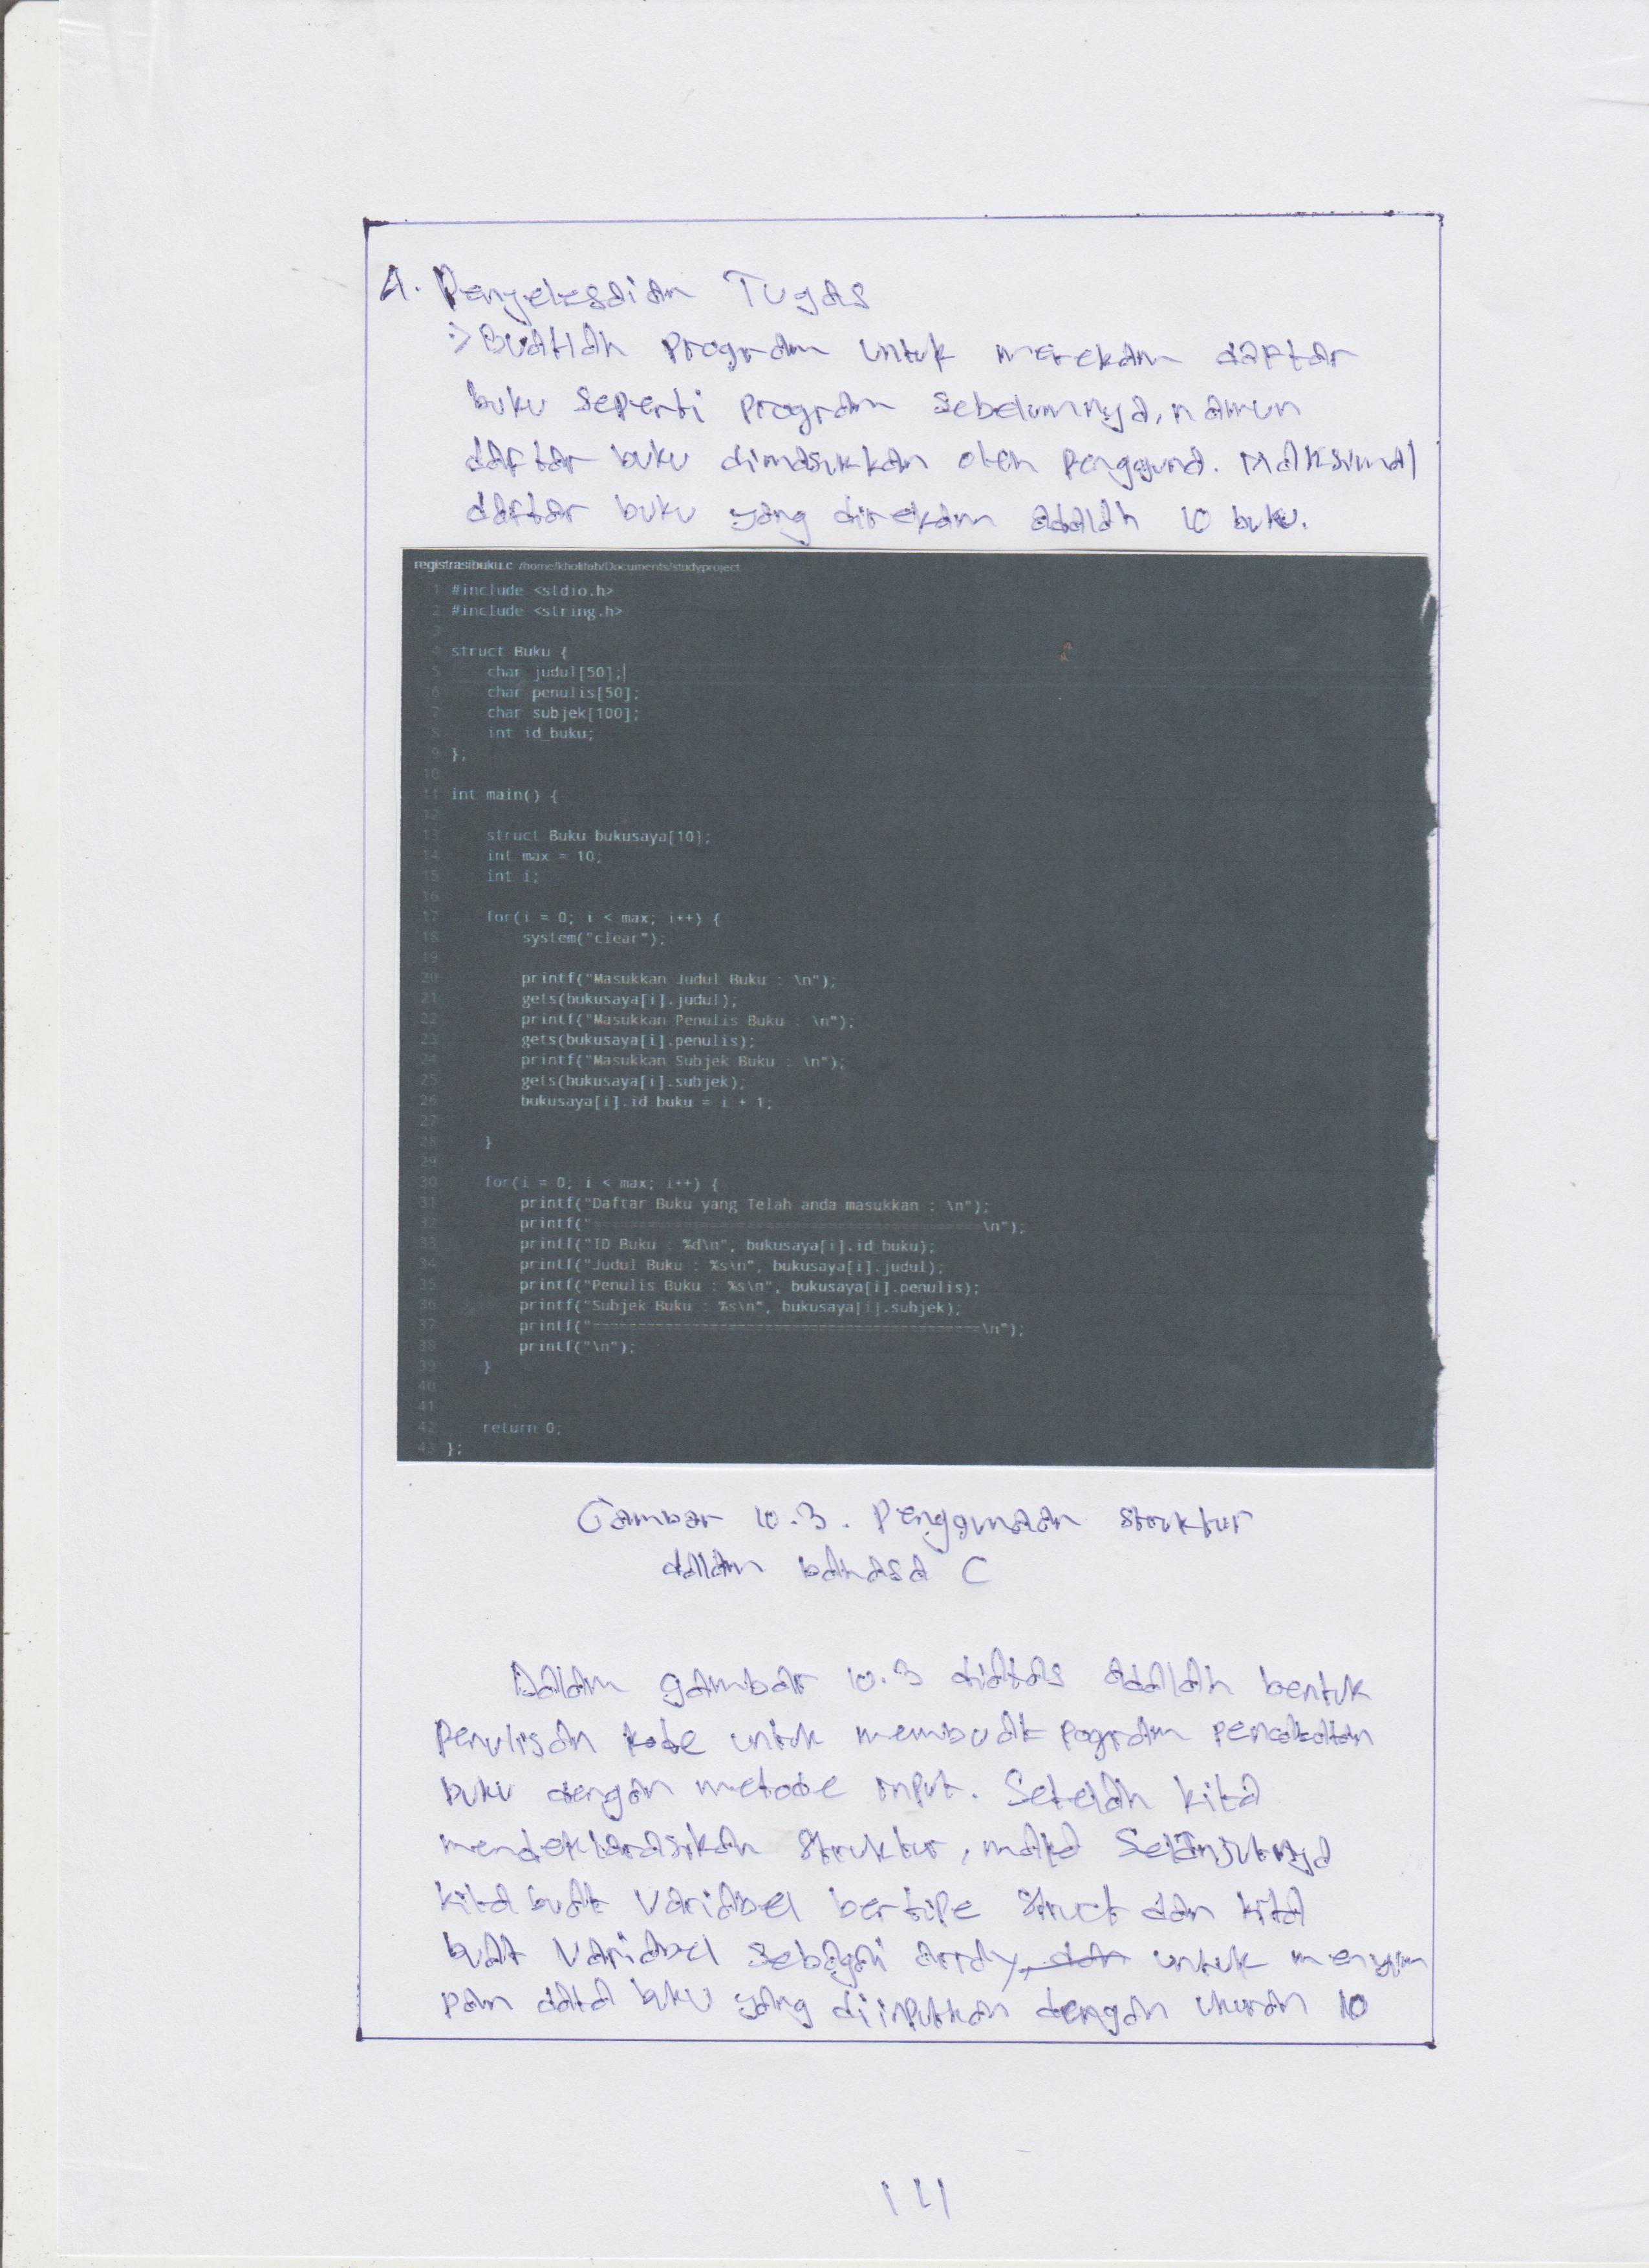 A. Penyelesaian Tugas
=> Buatlah Program untuk merekam daftar
buku seperti program sebelumnya, namun
daftar buku dimasukkan oleh pengguna. Maksimal
daftar buku yang direkam adalah 10 buku.
registrasibuku.c /home/kholifah/Documents/studyproject
1 #include <stdio.h>
2 #include <string.h>
3
4 struct Buku {
5 char judul[50];
6 char penulis[50];
7 char subjek[100];
8 int id_buku;
9 };
10
11 int main() {
12
13 struct Buku bukusaya[10];
14 int max = 10;
15 int i;
16
17 for(i = 0; i < max; i++) {
18 system("clear");
19
20 printf("Masukkan Judul Buku : \n");
21 gets(bukusaya[i].judul);
22 printf("Masukkan Penulis Buku : \n");
23 gets(bukusaya[i].penulis);
24 printf("Masukkan Subjek Buku : \n");
25 gets(bukusaya[i].subjek);
26 bukusaya[i].id_buku = i + 1;
27
28 }
29
30 for(i = 0; i < max; i++) {
31 printf("Daftar Buku yang Telah anda masukkan : \n");
32 printf("===========================================\n");
33 printf("ID Buku : %d\n", bukusaya[i].id_buku);
34 printf("Judul Buku : %s\n", bukusaya[i].judul);
35 printf("Penulis Buku : %s\n", bukusaya[i].penulis);
36 printf("Subjek Buku : %s\n", bukusaya[i].subjek);
37 printf("===========================================\n");
38 printf("\n");
39 }
40
41
42 return 0;
43 };
Gambar 10.3. Penggunaan struktur
dalam bahasa C
Dalam gambar 10.3 diatas adalah bentuk
Penulisan kode untuk membuat pogram pencatatan
buku dengan metode input. Setelah kita
mendeklarasikan struktur, maka Selanjutnya
kita buat Variabel bertipe struct dan kita
buat Variabel sebagai array, untuk menyim
pan data buku yang diinputkan dengan ukuran 10